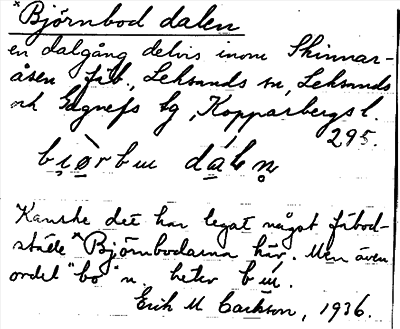 *Björnbod dalen
en dalgång delvis inom Skinnar-
åsen fäb., Leksands sn, Leksands
och Gagnefs tg, Kopparbergs l.
295.
bi̯ø̀rbuɯ dálen̥
Kanske det har legat något fäbod-
ställe *Björnbodarna här. Men även
ordet "bo" n. heter bɯ́.
Erik M Carlsson, 1936.